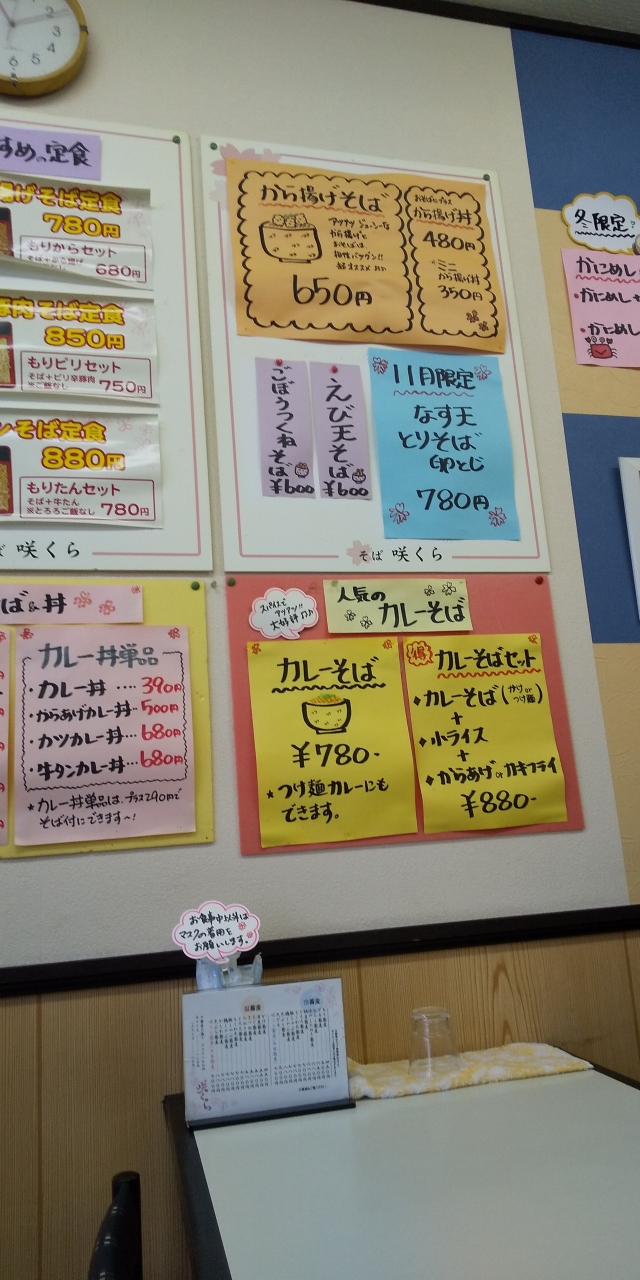 すめの定食
揚げそば定食
780円
もりからセット
680円
肉そば定食
850円
もりピリセット
そば+ピリ辛豚肉
※ご飯なし
750円
ンそば定食
880円
もりたんセット
そば+牛たん
※とろろご飯なし
780円
咲くら
から揚げそば
アツアツ ジューシーな
から揚げと
おそばは
相性バツグン!!
650円
おそばにプラス
から揚げ丼
480円
ミニ
から揚げ丼
350円
ごぼうつくねそば
¥600
えび天そば
¥600
11月限定
なす天
とりそば
卵とじ
780円
そば 咲くら
冬限定
かにめし
・かにめし+
・かにめし
ば&丼
カレー丼単品
・カレー丼‥‥390円
・からあげカレー丼‥500円
・カツカレー丼…680円
・牛タンカレー丼…680円
★カレー丼単品は、プラス290円で
そば付にできます〜!
スパイスで
アツアツ!!
大好評♪♪
人気の
カレーそば
カレーそば
¥780-
★つけ麺カレーにも
できます。
得
カレーそばセット
♦カレーそば(かけorつけ麺)
+
♦小ライス
+
♦からあげorカキフライ
¥880-
お食事中以外は
マスクの着用を
お願いします。
咲くら
3
4
5
6